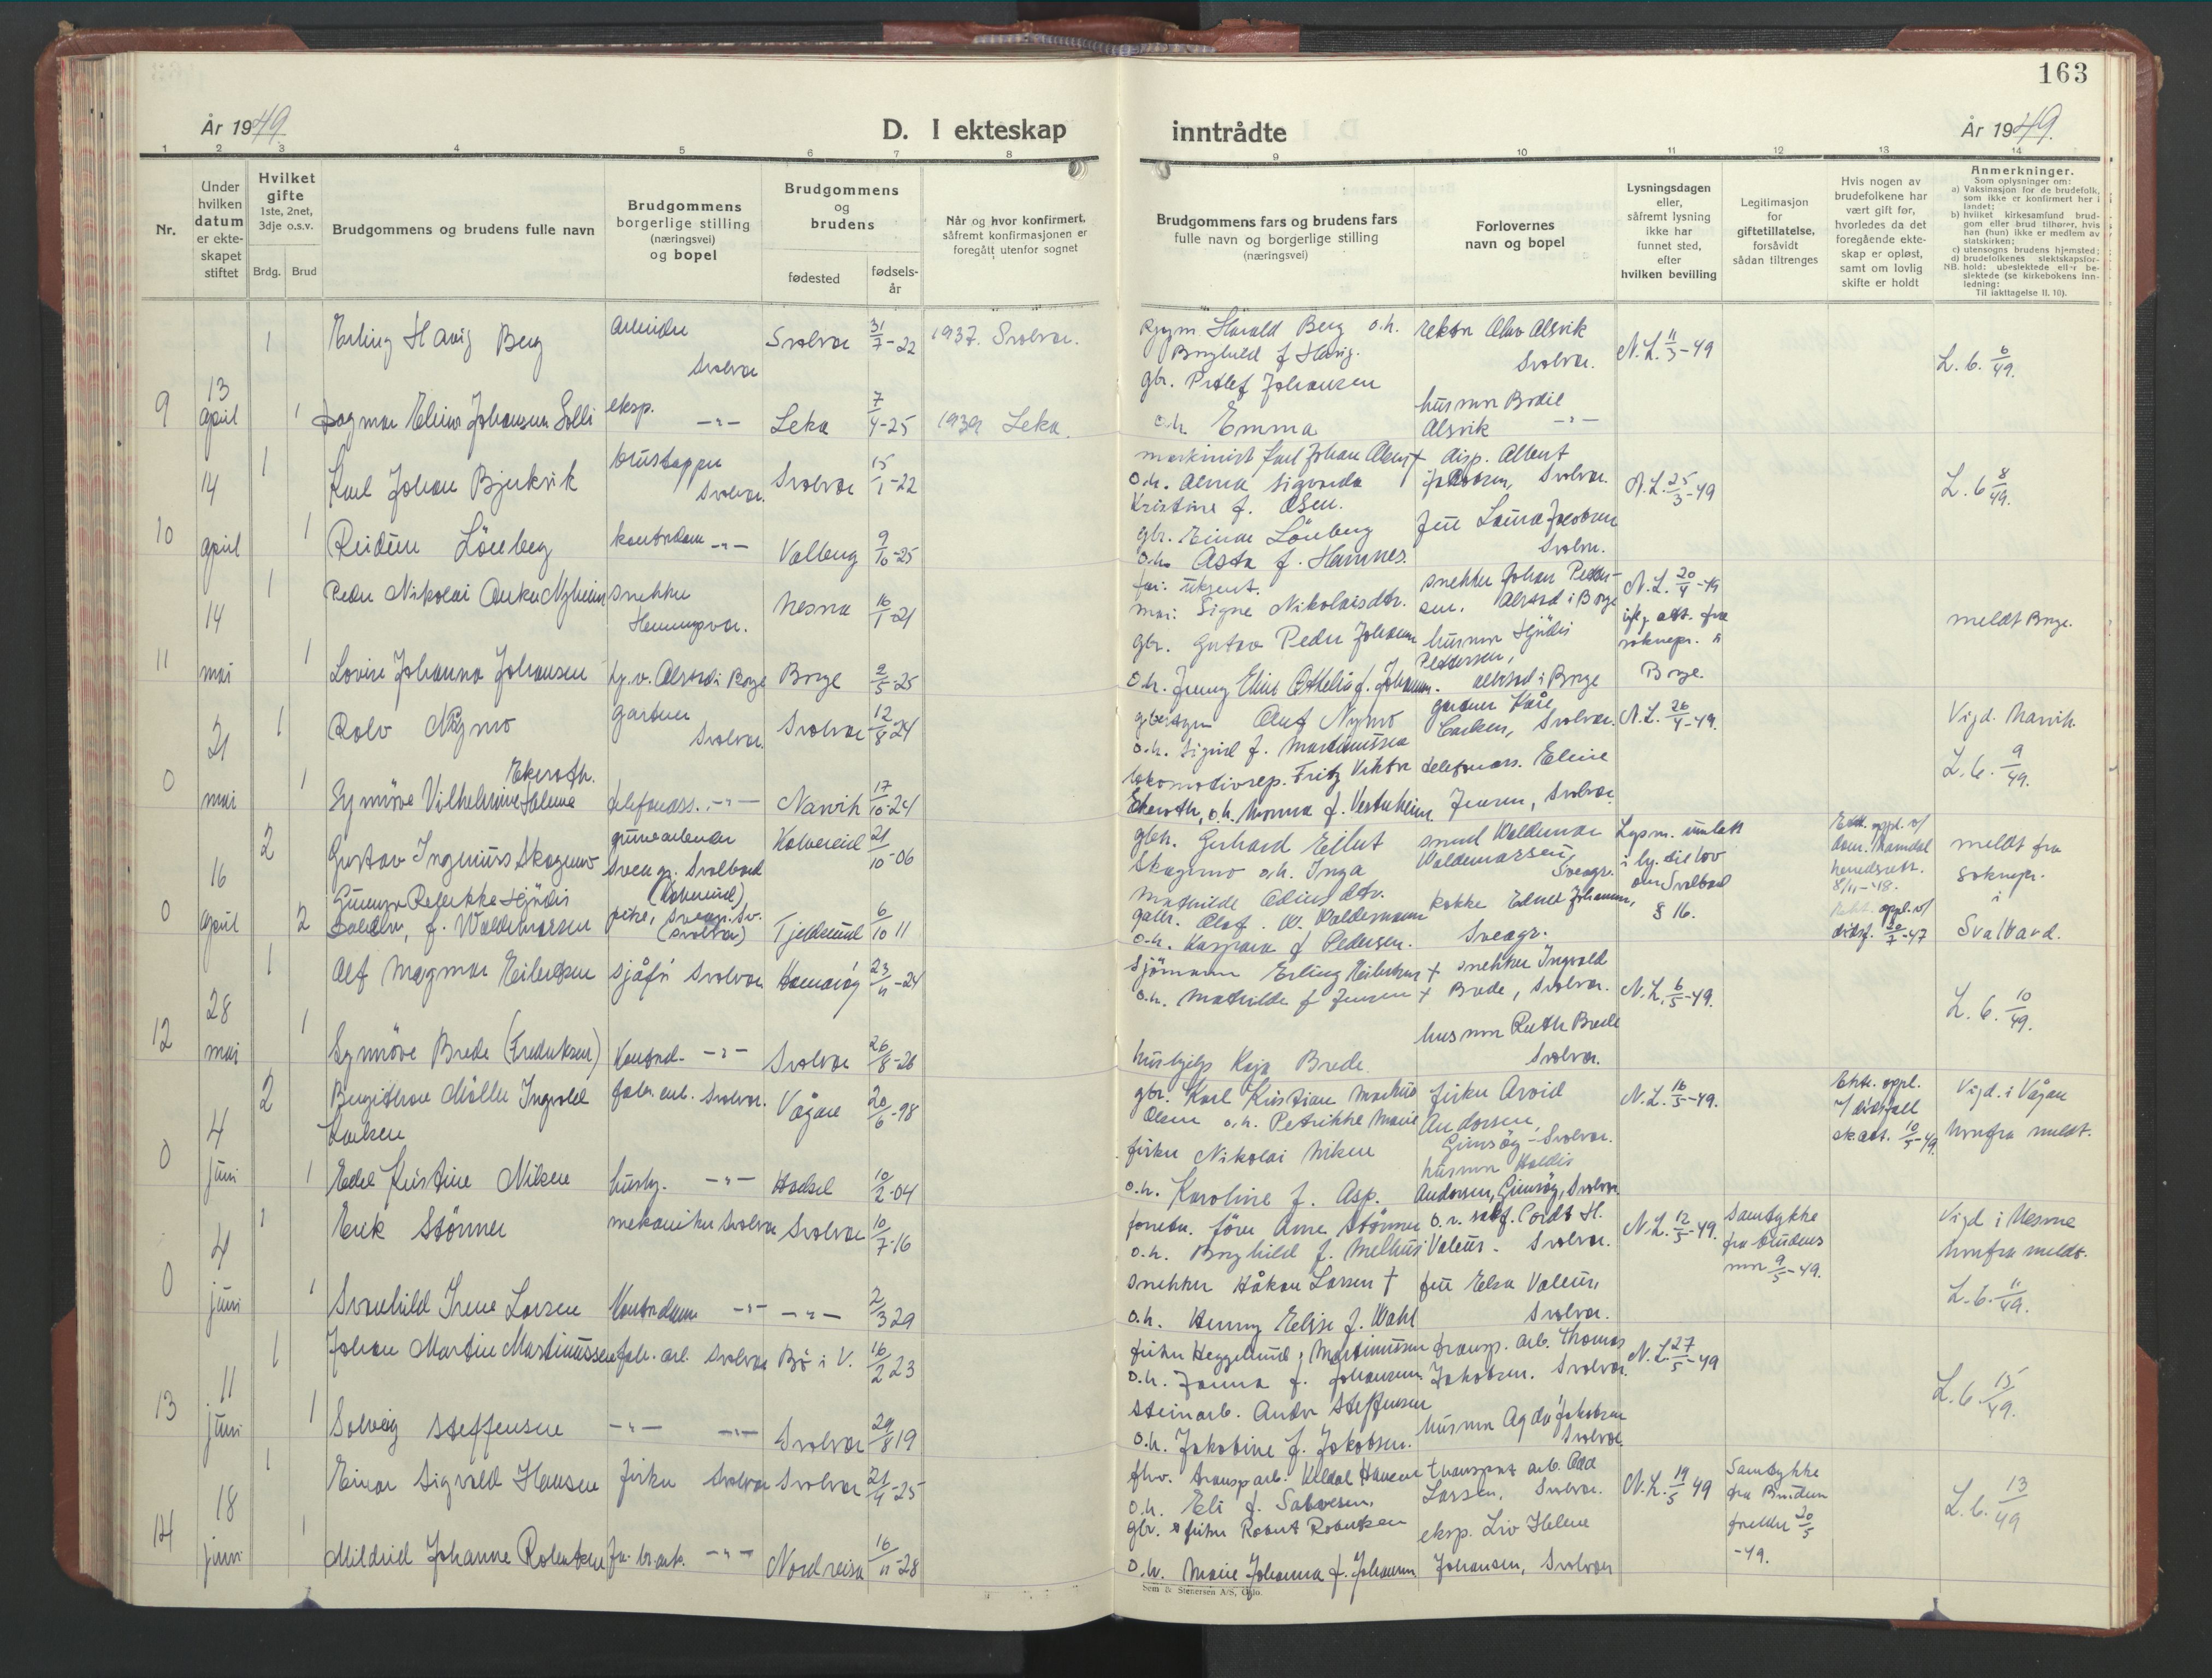 163
År 1949.
D. I ekteskap
inntrådte
År 1949.
1 2 3 4 5 6 7 8 9 10 11 12 13 14
Nr.
Under hvilken datum er ekteskapet stiftet
Hvilket gifte
1ste, 2net, 3dje o.s.v.
Brdg. Brud
Brudgommens og brudens fulle navn
Brudgommens borgerlige stilling (næringsvei) og bopel
Brudgommens og brudens
fødested
fødsels-år
Når og hvor konfirmert, såfremt konfirmasjonen er foregått utenfor sognet
Brudgommens fars og brudens fars fulle navn og borgerlige stilling (næringsvei)
Forlovernes navn og bopel
Lysningsdagen eller, såfremt lysning ikke har funnet sted, efter hvilken bevilling
Legitimasjon for giftetillatelse, forsåvidt sådan tiltrenges
Hvis nogen av brudefolkene har vært gift før, hvorledes da det foregående ekteskap er opløst, samt om lovlig skifte er holdt
Anmerkninger.
Som oplysninger om:
a) Vaksinasjon for de brudefolk, som ikke er konfirmert her i landet;
b) hvilket kirkesamfund brudgom eller brud tilhører, hvis han (hun) ikke er medlem av statskirken;
c) utensogns brudens hjemsted;
d) brudefolkenes slektskapsforhold: ubeslektede eller beslektede (se kirkebokens Innledning:
NB. Til iakttagelse II. 10).
1 Erling Havig Berg arbeider Svolvær Svolvær 31/7-22 1937. Svolvær.
Harald Berg o.h. Borghild f. Havig. rektor Olav Alsvik Svolvær. N.L. 11/3-49 L.6. 6/49.
9 13 april 1 Dagmar Eline Johansen Solli eksp. -"- Leka 7/4-25 1939 Leka.
gbr. Petlef Johansen o.h. Emma husmor Bodil Alsvik -"-
14 1 Karl Johan Bjerkvik Svolvær. Svolvær 15/1-22
maskinist Karl Johan o.h. Alma Sigvarda Kristine f. Olsen. disp. Albert Jakobsen, Svolvær. N.L. 25/3-49 L.6 8/49.
10 april 1 Reidun Lönberg kontordame -"- Valberg 9/10-25
gbr. Einar Lönberg o.h. Asta f. Hamnes. fru Laura Jacobsen Svolvær.
14 1 Peder Nikolai Anker Nyheim snekker Henningsvær. Nesna 16/1-21
far: ukjent. mor: Signe Nikolaisdtr. snekker Johan Pedersen. Alstad i Borge N.L. 20/4-49 iflg. att. fra soknepr. i Borge. meldt Borge.
11 mai 1 Lovise Johanna Johansen hj.v. Alstad i Borge Borge 2/5-25
gbr. Gustav Peder Johansen o.h. Jenny Eline Othelia f. Johansen. husmor Hjördis Pedersen, Alstad i Borge
21 1 Rolv Nymo gartner Svolvær. Svolvær 12/8 24
Olaf Nymo o.h. Sigrid f. Martinussen gartner Kåre Carlsen, Svolvær. N.L. 26/4-49. Vigd. Narvik. L.6. 9/49.
0 mai 1 Synnöve Vilhelmine Helene Ekeroth. telefonass. -"- Narvik 17/10-24
lokomotivrep. Fritz Viktor Ekeroth, o.h. Monna f. Vesterheim telefonass. Eline Jensen, Svolvær
16 2 Gustav Ingenius Skogmo gruvearbeider Sveagr. Svalbard Kolvereid 21/10-06
gbr. Gerhard Eilert Skogmo o.h. Inga Mathilde smed Waldemar Waldemarsen, Sveagr. Lysn. i h. til lov om Svalbard § 16. Ekt. oppl. v/ dom. Namdal herredsrett. 8/11-48. meldt fra soknepr. i Svalbard.
0 april 2 Gunnvor Rebekke Hjördis f. Waldemarsen Sveagr. Sv. (Svolvær) Tjeldsund 6/10 11
Olaf W. Waldemarsen o.h. Kaspara f. Pedersen. kokke Edna Johansen, Sveagr. oppl. v/ dödsf. 20/7-47
1 Alf Magmar Eilertsen sjåför Svolvær Hamaröy 23/11-24
sjömann Erling Eilertsen † o.h. Mathilde f. Jensen † snekker Ingvald Brede, Svolvær. N.L. 6/5-49. L.6. 10/49.
12 28 mai 1 Synnöve Brede (Fredriksen) Kontord. -"- Svolvær 26/8-26
hushjelp Kaja Brede. husmor Ruth Brede Svolvær.
4 2 Bergithon Möller Ingvald Karlsen fabr. arb. Svolvær. Vågan 20/6-98
gbr. Karl Kristian Markus Olsen o.h. Petrikke Marie fisker Arvid Andorsen, Gimsöy-Svolvær. N.L. 16/5-49. Ekt. oppl. v/ dödsfall sk.att. 10/5-49. Vigd. i Vågan herfra meldt.
0 juni 1 Edel Kristine Nilsen hushj. -"- Hadsel 10/2-04
fisker Nikolai Nilsen o.h. Karoline f. Asp. husmor Haldis Andorsen, Gimsöy, Svolvær
4 1 Erik Störmer mekaniker Svolvær Svolvær 10/7-16
Arne Störmer o.h. Borghild f. Melhus Cordt H. Valeur. Svolvær. N.L. 12/5-49. Samtykke fra brudens mor 9/5-49. Vigd i Nesna herfra meldt.
0 juni 1 Svanhild Irene Larsen Kontordame -"- -"- 2/3 29
snekker Håkon Larsen † o.h. Henny Elise f. Wahl fru Elsa Valeur, Svolvær. L.6. 11/49.
11 1 Johan Martin Martinussen fabr. arb. Svolvær Bö i V. 16/2 23
fisker Heggelund Martinussen o.h. Janna f. Johansen transp. arb. Thomas Jakobsen. Svolvær. N.L. 27/5-49 L.6. 15/49.
13 juni 1 Solveig Steffensen -"- -"- Svolvær 29/8 19
steinarb. Andor Steffensen o.h. Jakobine f. Jakobsen. husmor Agda Jakobsen Svolvær
18 1 Einar Sigvald Hansen fisker Svolvær Svolvær 21/4-25
fhv. transp.arb. Hansen o.h. Eli f. Salvesen. transport arb. Larsen, Svolvær. N.L. 19/5 49 Samtykke fra foreldre 20/5-49. L.6. 13/49
14 juni 1 Mildrid Johanne Robertsen -"- Nordreisa 16/11-28
gbr. fisker Robert Robertsen o.h. Marie Johanna f. Johansen eksp. Liv Helene Johansen, Svolvær
Sem & Stenersen A/S, Oslo.